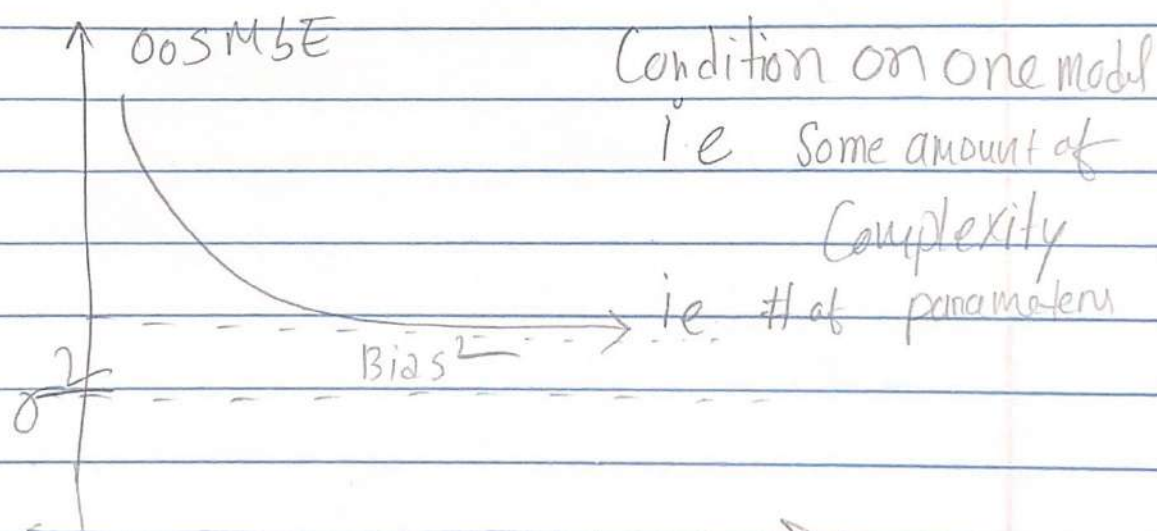 OOSMSE
Condition on one model
i.e Some amount of
Complexity
i.e. # of parameters
Bias²
σ²